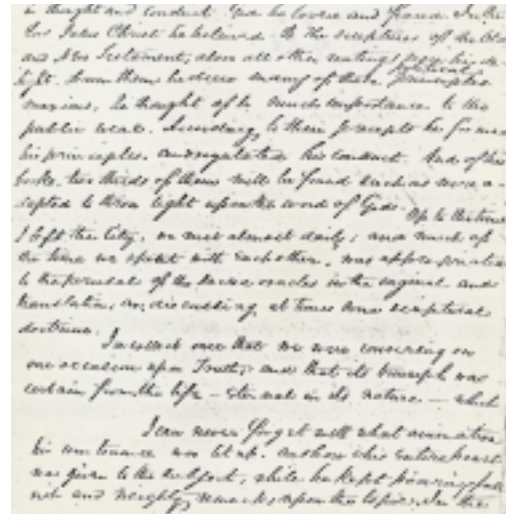 in thought and conduct. God he loved and feared. In the
Lord Jesus Christ he believed. The scriptures of the Old
and New Testament, above all other writings were his de-
light. From them he drew many of those political principles
maxims, he thought of so much importance to the
public weal. According to their precepts he formed
his principles, and regulated his conduct. And of his
books, two thirds of them will be found such as were a-
dapted to throw light upon the word of God. Up to the time
I left the City, we met almost daily; and much of
the time we spent with each other, was appropriated
to the perusal of the divine oracles in the original and
translation, or, discussing at times some scriptural
doctrine.
I recollect once that we were conversing on
one occasion upon Truth; and that its triumph was
certain from the life - eternal in its nature - which
I can never forget with what animation
his countenance was lit up. and how his entire heart
was given to the subject, while he kept pouring forth
rich and weighty remarks upon the topic. In the